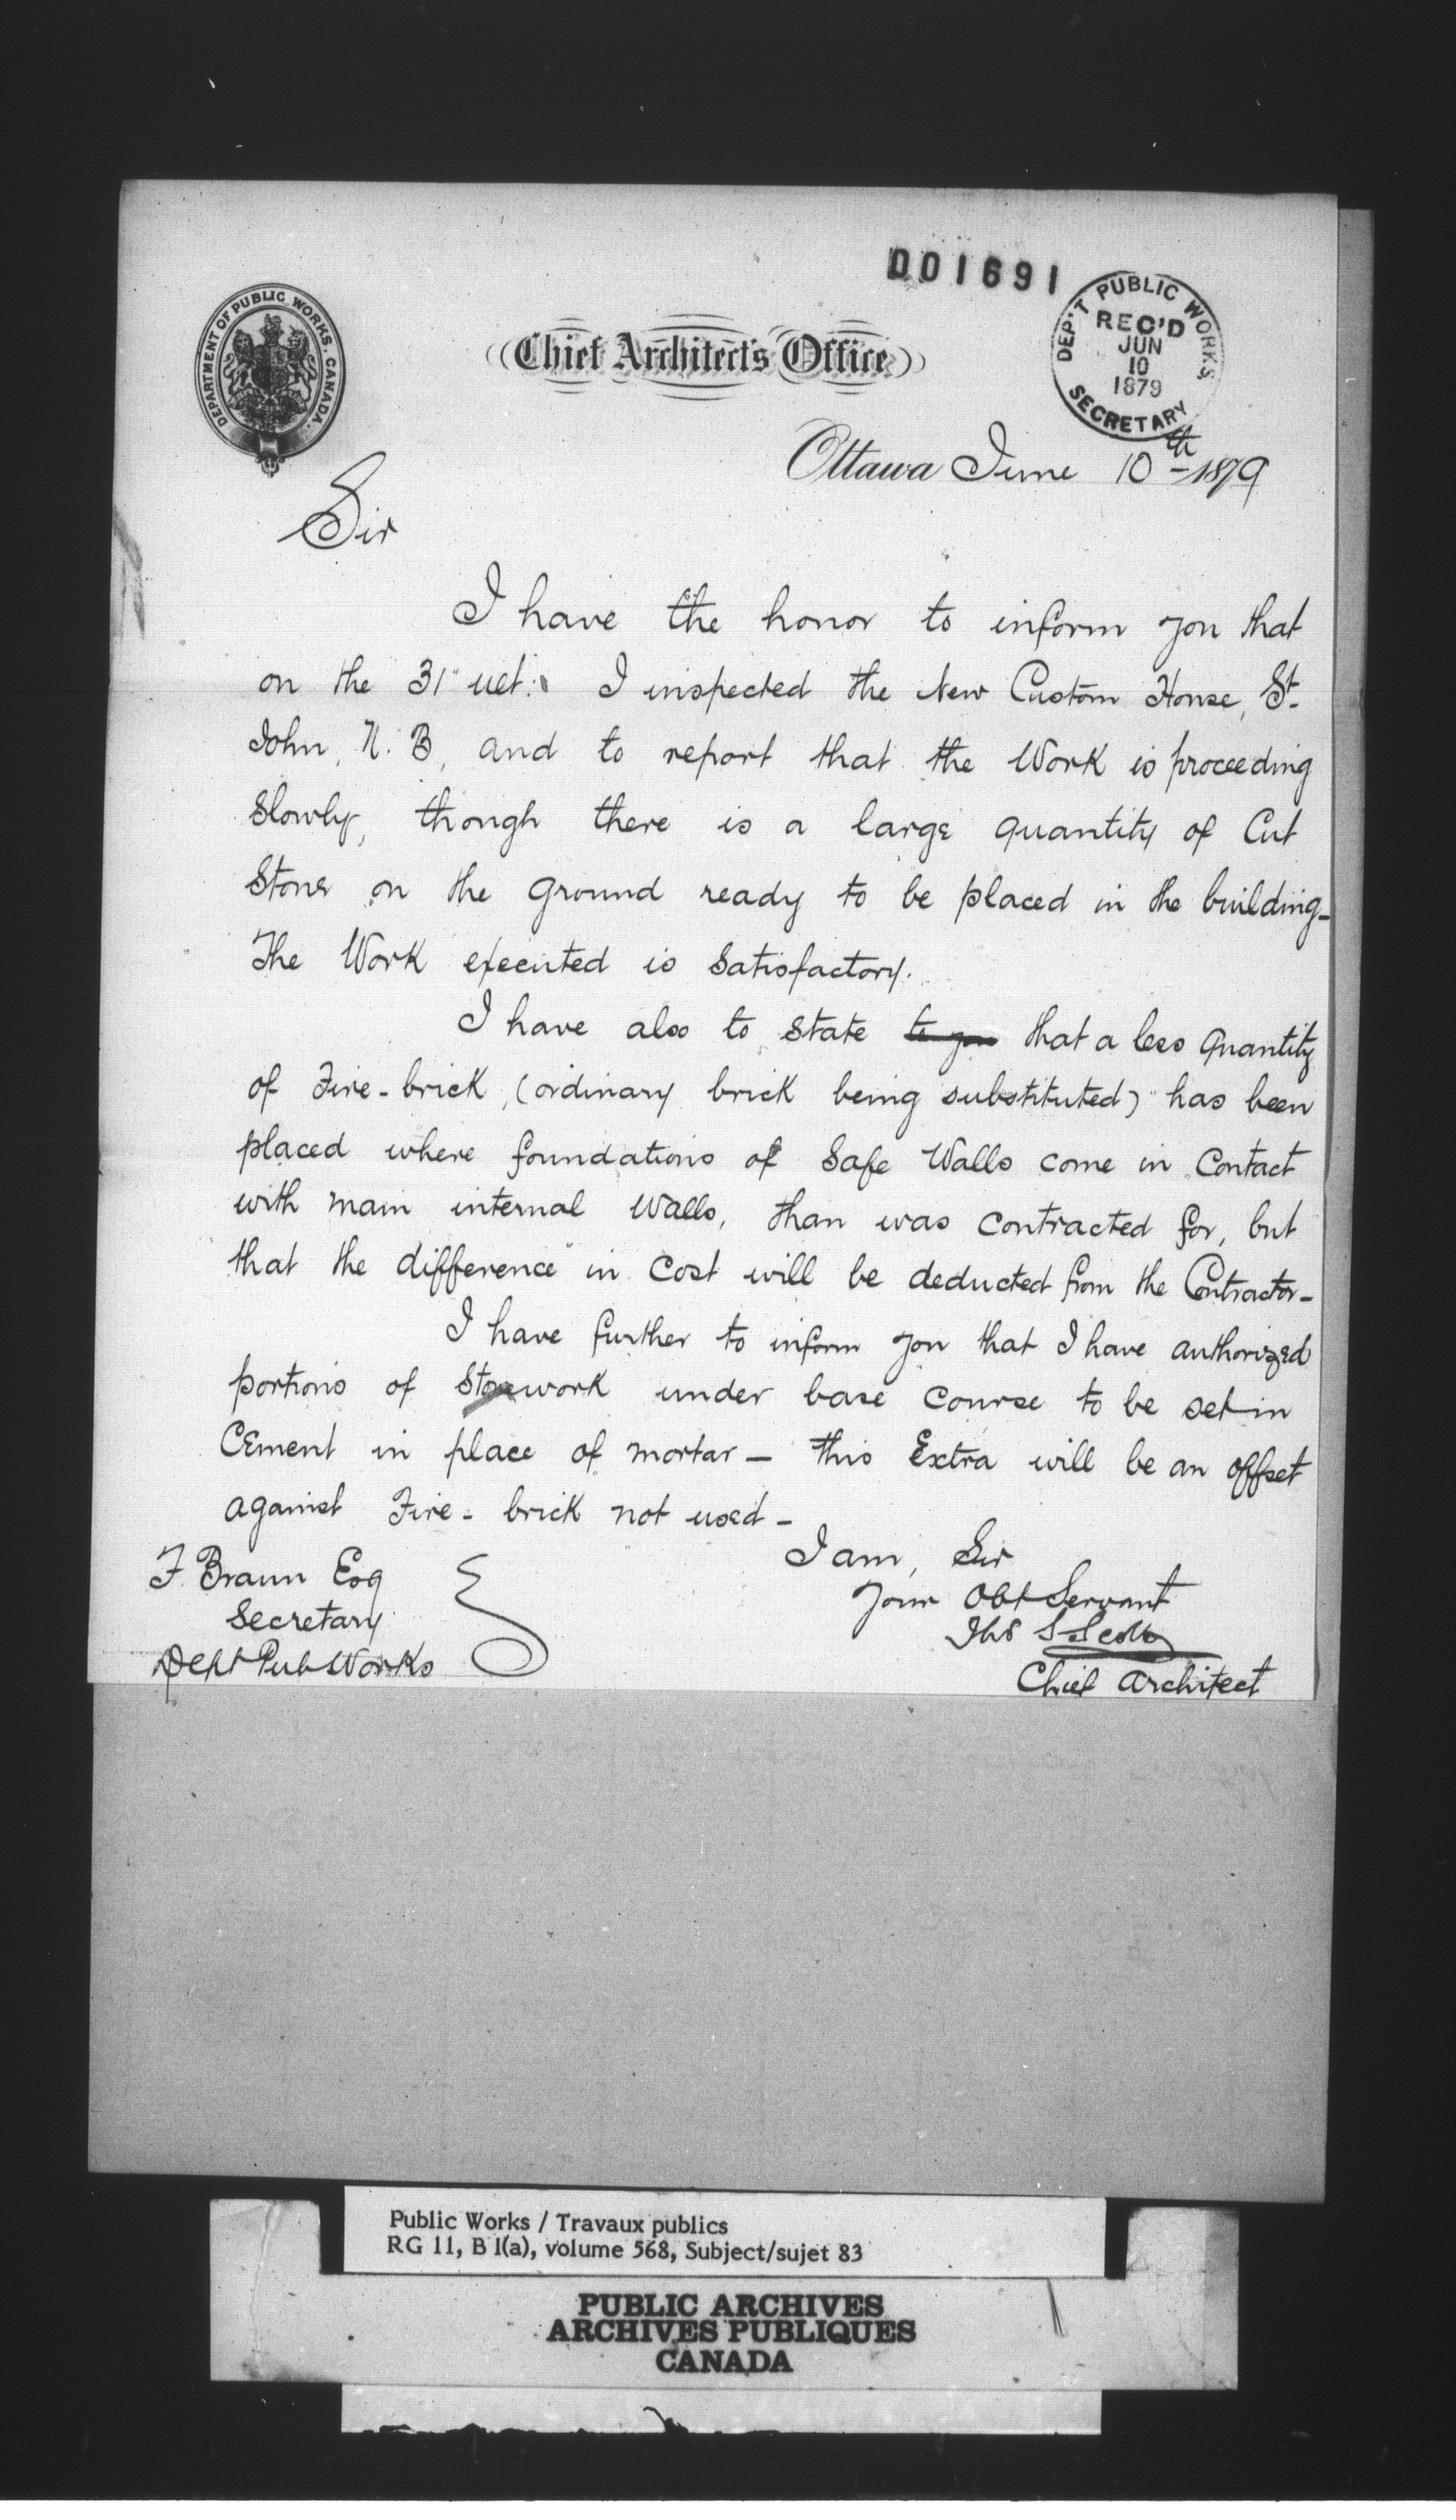 001691
DEPARTMENT OF PUBLIC WORKS. CANADA.
Chief Architect's Office
DEP'T PUBLIC WORKS
REC'D
JUN
10
1879
SECRETARY
Ottawa June 10th 1879
Sir
I have the honor to inform you that
on the 31" ult: I inspected the New Custom House, St.
John, N. B, and to report that the Work is proceeding
Slowly, though there is a large quantity of Cut
Stone on the ground ready to be placed in the building -
The Work executed is Satisfactory.
I have also to State to you that a less Quantity
of Fire-brick, (ordinary brick being substituted) has been
placed where foundations of Safe Walls come in Contact
with main internal Walls, than was contracted for, but
that the difference in Cost will be deducted from the Contractor -
I have further to inform you that I have authorized
portions of Stonework under base course to be set in
Cement in place of mortar - this Extra will be an offset
against Fire-brick not used -
I am, Sir
Your Obt Servant
Thos S Scott
Chief Architect
F. Braun Esq
Secretary
Dept Pub Works
Public Works / Travaux publics
RG 11, B 1(a), volume 568, Subject/sujet 83
PUBLIC ARCHIVES
ARCHIVES PUBLIQUES
CANADA